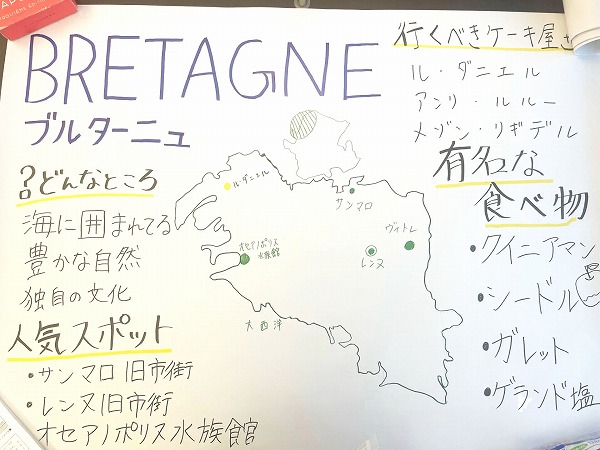 BRETAGNE
ブルターニュ
?どんなところ
海に囲まれてる
豊かな自然
独自の文化
人気スポット
・サンマロ旧市街
・レンヌ旧市街
オセアノポリス水族館
ル・ダニエル
サンマロ
ヴィトレ
レンヌ
オセアノポリス
水族館
大西洋
行くべきケーキ屋さ
ル・ダニエル
アンリ・ルルー
メゾン・リギデル
有名な
食べ物
・クイニアマン
・シードル
・ガレット
・ゲランド塩